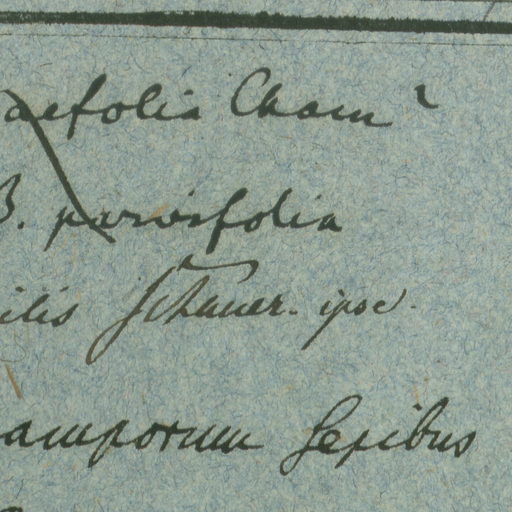 aefolia Cham
B. parvifolia
ilis Schauer. ipse.
amporum Sepibus